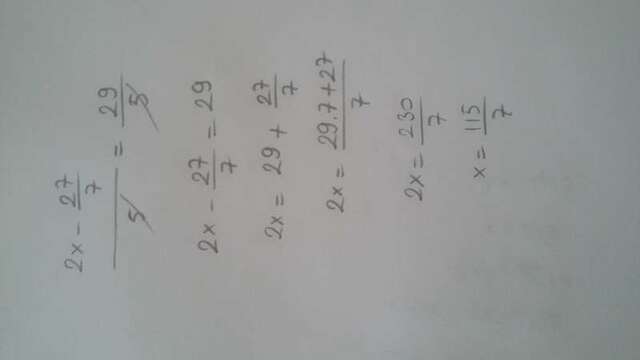 (2x - 27/7)/5 = 29/5
2x - 27/7 = 29
2x = 29 + 27/7
2x = (29.7+27)/7
2x = 230/7
x = 115/7